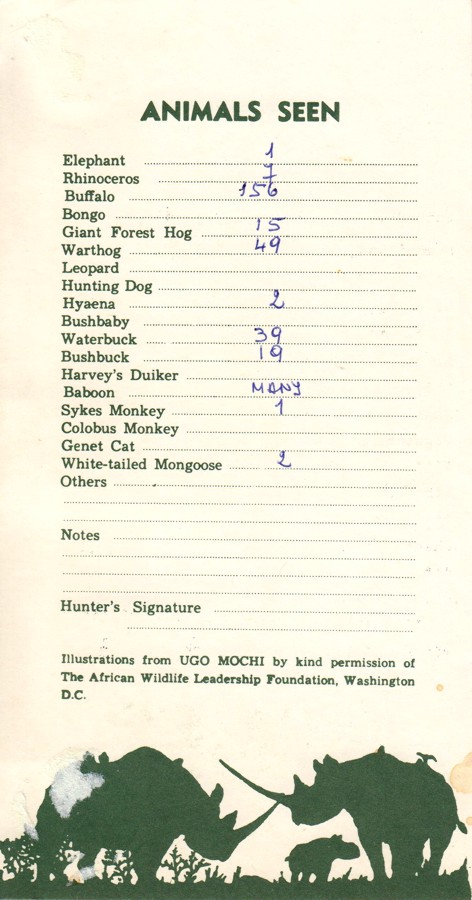 ANIMALS SEEN
Elephant 1
Rhinoceros 7
Buffalo 156
Bongo
Giant Forest Hog 15
Warthog 49
Leopard
Hunting Dog
Hyaena 2
Bushbaby
Waterbuck 39
Bushbuck 19
Harvey's Duiker
Baboon MANY
Sykes Monkey 1
Colobus Monkey
Genet Cat
White-tailed Mongoose 2
Others
Notes
Hunter's Signature
Illustrations from UGO MOCHI by kind permission of
The African Wildlife Leadership Foundation, Washington
D.C.